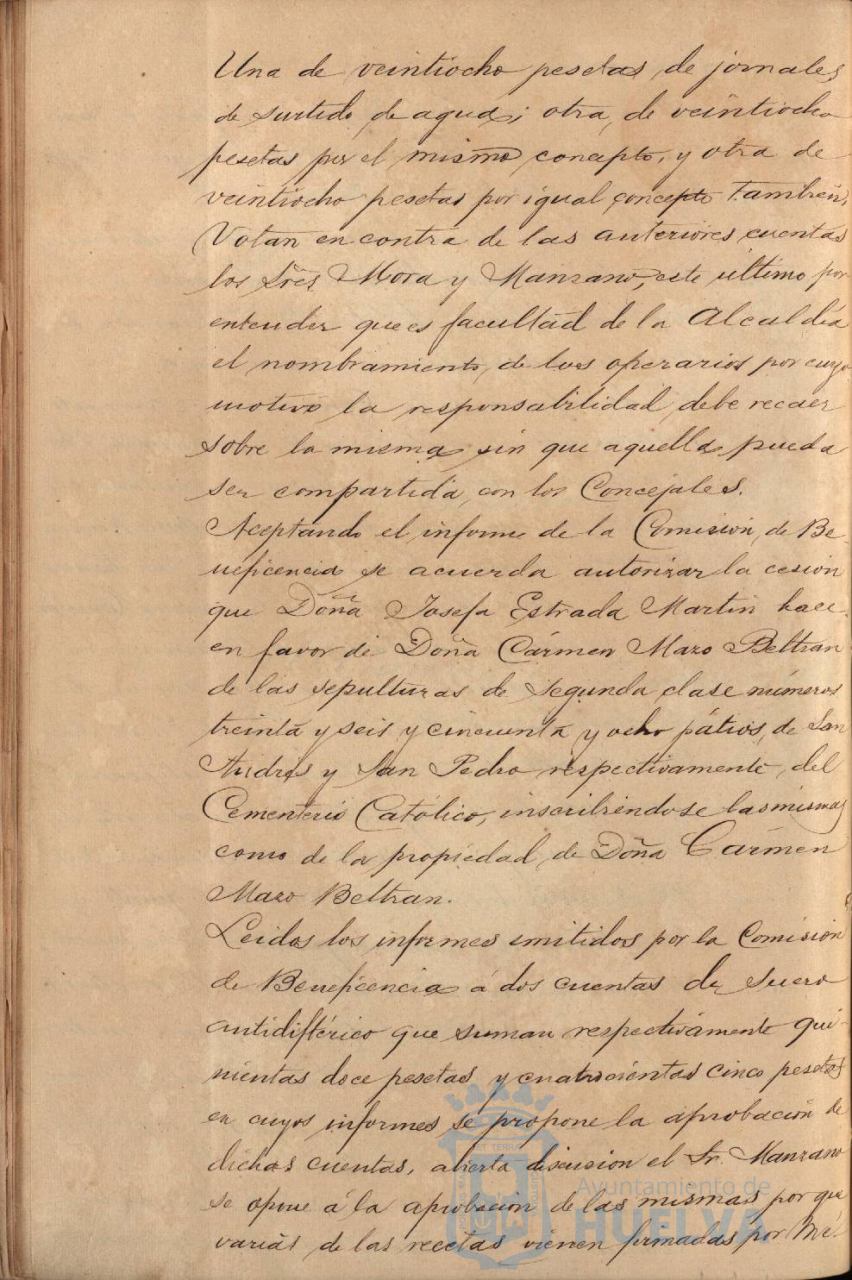 Una de veintiocho pesetas de jornales
de surtido de agua; otra, de veintiocho
pesetas por el mismo concepto, y otra de
veintiocho pesetas por igual concepto tambien,
Votan en contra de las anteriores cuentas
los Sres Mora y Manzano, este último por
entender que es facultad de la Alcaldía
el nombramiento de los operarios por cuyo
motivo la responsabilidad debe recaer
sobre la misma sin que aquella pueda
ser compartida con los Concejales.
Aceptando el informe de la Comision de Be
neficencia se acuerda autorizar la cesion
que Doña Josefa Estrada Martin hace
en favor de Doña Cármen Mazo Beltran
de las sepulturas de segunda clase números
treinta y seis y cincuenta y ocho pátios, de San
Andrés y San Pedro respectivamente, del
Cementerio Católico, inscribiéndose las mismas
como de la propiedad de Doña Cármen
Mazo Beltran.
Leidos los informes emitidos por la Comision
de Beneficencia á dos cuentas de suero
antidiftérico que suman respectivamente qui-
nientas doce pesetas y cuatrocientas cinco pesetas
en cuyos informes se propone la aprobacion de
dichas cuentas, abierta discusion el Sr. Manzano
se opone á la aprobacion de las mismas por que
varias de las recetas vienen firmadas por Mé-
Ayuntamiento de
HUELVA